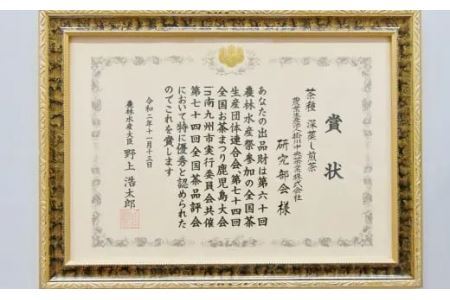 賞状
茶種 深蒸し煎茶
農業生産法人掛川中央茶業株式会社
研究部会様
あなたの出品財は第六十回
農林水産祭参加の全国茶
生産団体連合会、第七十四回
全国お茶まつり鹿児島大会
in南九州市実行委員会共催
第七十四回全国茶品評会
において特に優秀と認められた
のでこれを賞します
令和二年十一月十三日
農林水産大臣 野上浩太郎